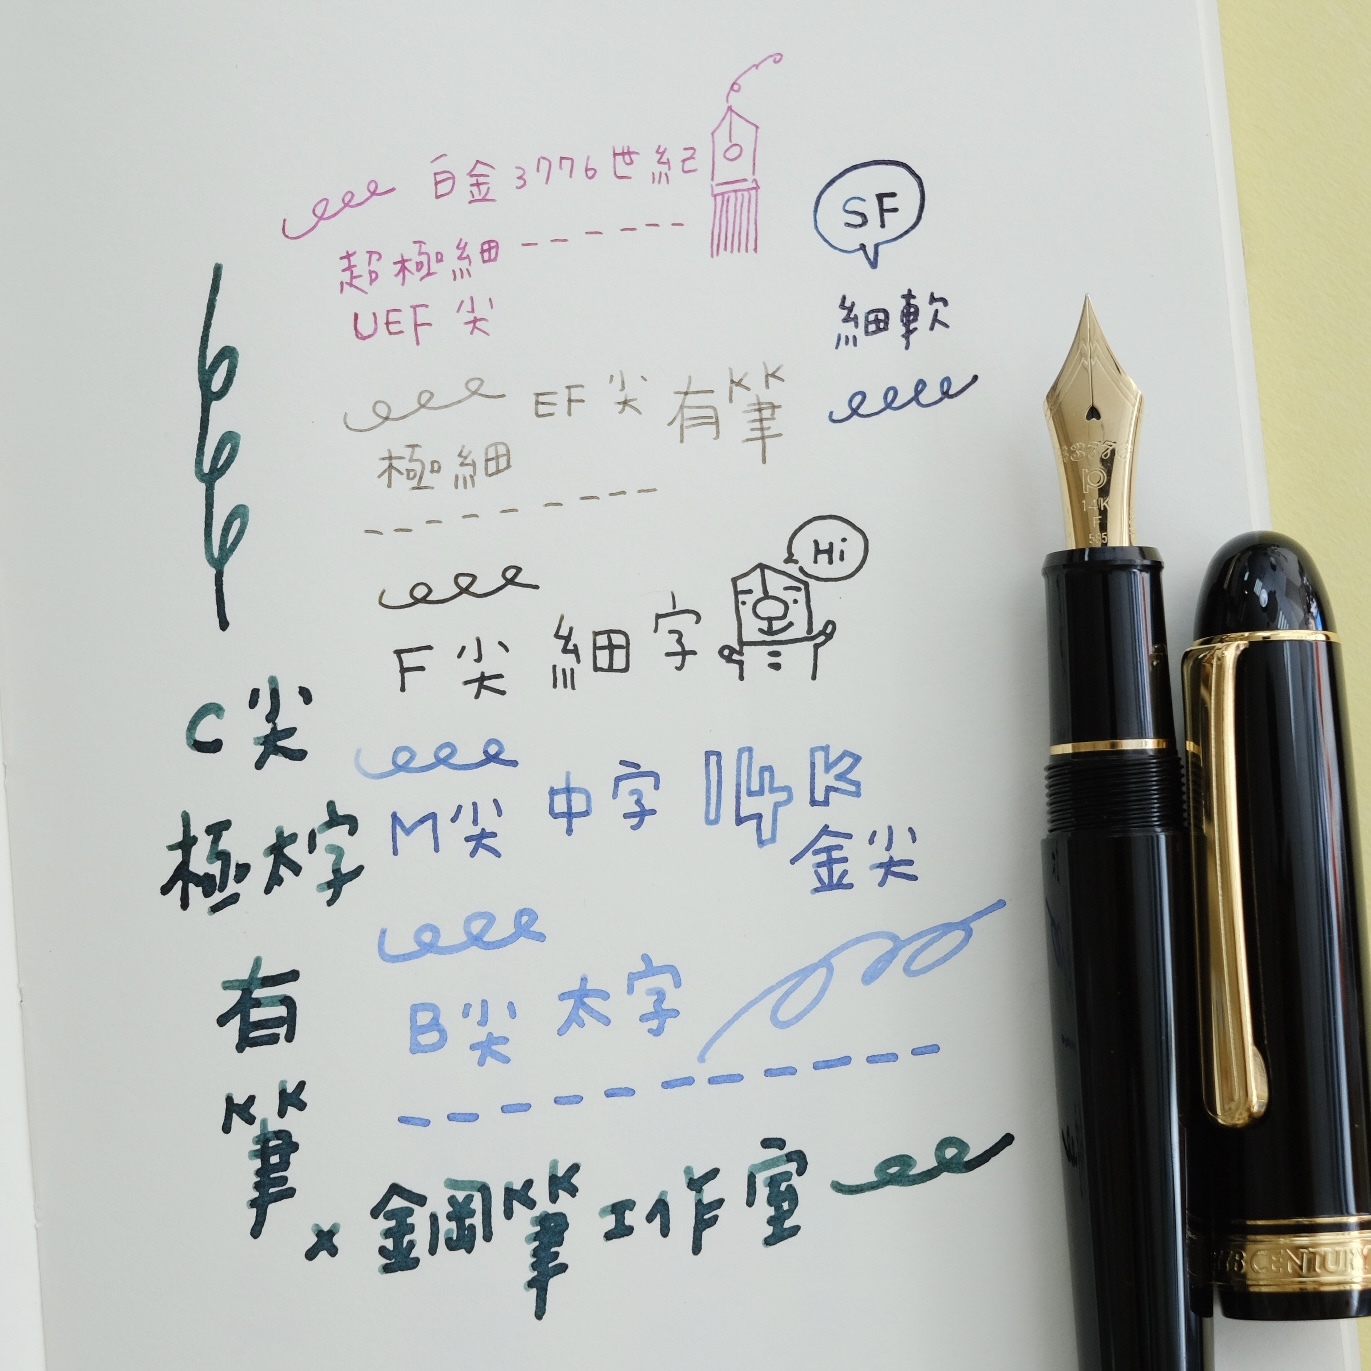 白金3776世紀
超極細
UEF 尖
SF
細軟
EF 尖 有筆
極細
Hi
F 尖 細字
C尖
極太字
有
筆
M尖 中字 14K
金尖
B尖 太字
x 鋼筆工作室
3776
P
14K
F
585
CENTURY